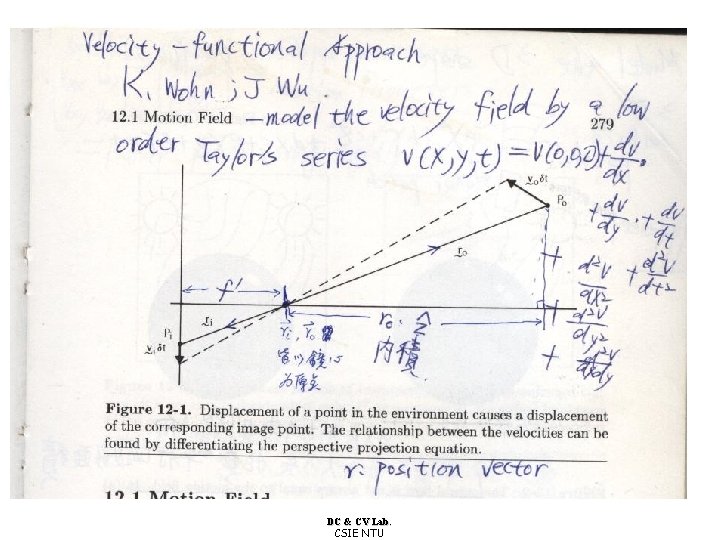 Velocity-functional Approach
K. Wohn ; J Wu.
12.1 Motion Field — model the velocity field by a low
279
order Taylor's series v(x,y,t) = v(0,0,0) + dv/dx.
+ dv/dy . + dv/dt
+ d²v/dx² + d²v/dt²
+ d²v/dy²
+ d²v/dxdy
v₀δt
P₀
r₀
f'
rᵢ
Pᵢ
vᵢδt
rᵢ, r₀
皆以鏡心
為原点
r₀ · ẑ
內積
Figure 12-1. Displacement of a point in the environment causes a displacement
of the corresponding image point. The relationship between the velocities can be
found by differentiating the perspective projection equation.
r: position vector
12.1 Motion Field
DC & CV Lab.
CSIE NTU